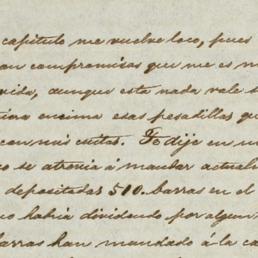 capitulo me vuelve loco, pues
an compromisos que me es m
vida, aunque esta nada vale s
encima esas pesadillas qu
con mis cuitas. Yo dije en m
co se atrevia á mandar actual
depositadas 500. barras en el
co habia dividendo por algun
barras han mandado á la ca